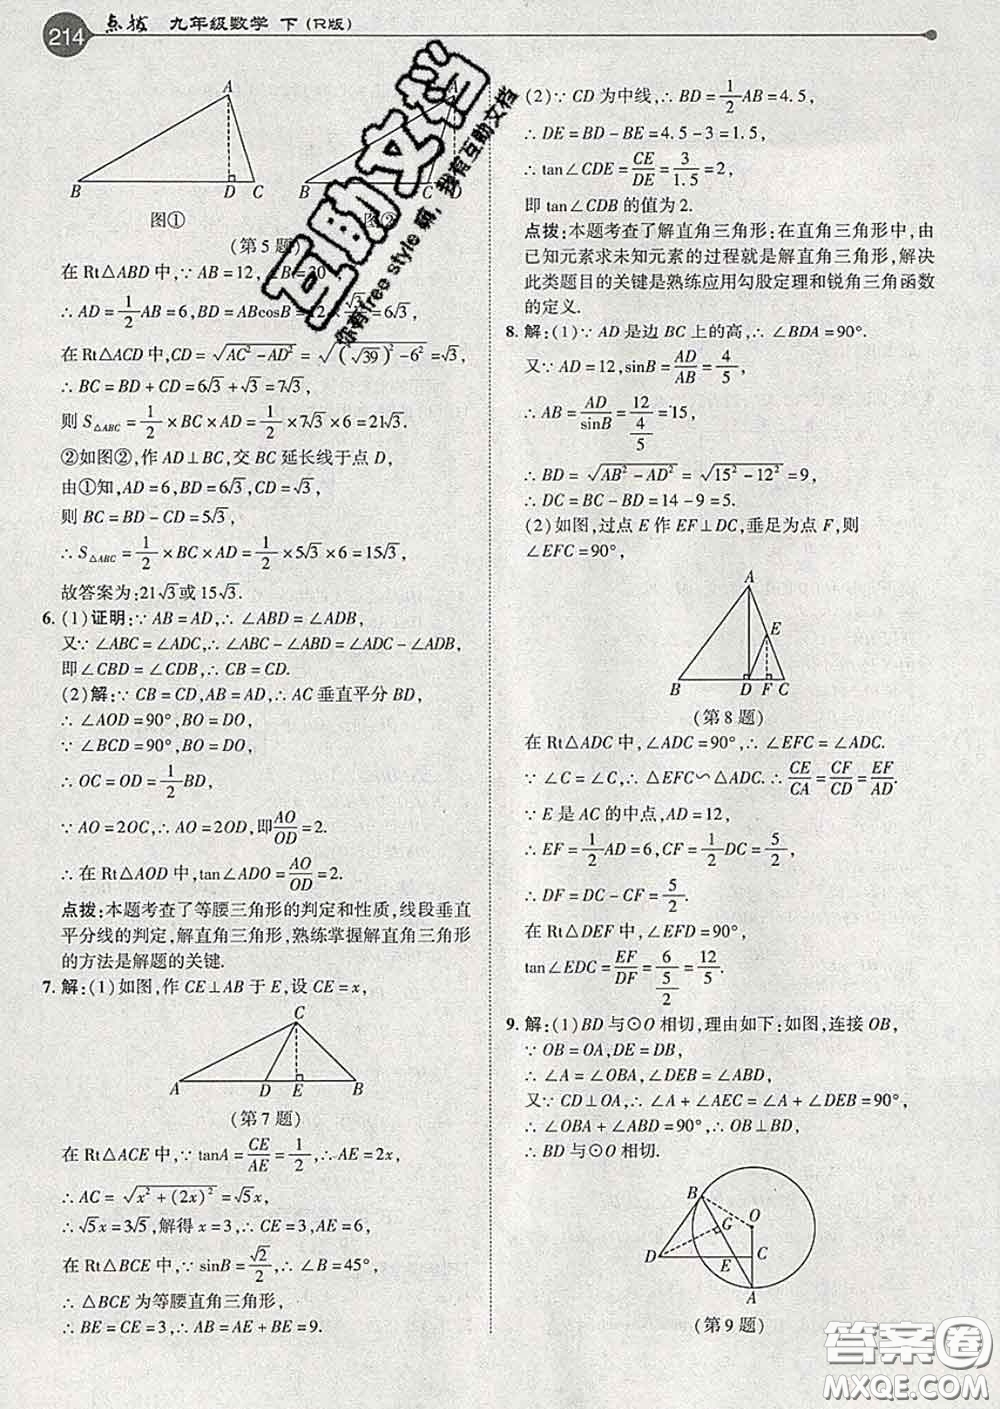 214 点拨 九年级数学 下(R版)
A
B
D
C
图①
A
B
C
D
(第5题)
在Rt△ABD中,∵AB=12,∠B=30
∴AD=1/2AB=6,BD=ABcosB=12×√3/2=6√3,
在Rt△ACD中,CD=√(AC²-AD²)=√((√39)²-6²)=√3,
∴BC=BD+CD=6√3+√3=7√3,
则S△ABC=1/2×BC×AD=1/2×7√3×6=21√3.
②如图②,作AD⊥BC,交BC延长线于点D,
由①知,AD=6,BD=6√3,CD=√3,
则BC=BD-CD=5√3,
∴S△ABC=1/2×BC×AD=1/2×5√3×6=15√3,
故答案为:21√3或15√3.
6. (1)证明:∵AB=AD,∴∠ABD=∠ADB,
又∵∠ABC=∠ADC,∴∠ABC-∠ABD=∠ADC-∠ADB,
即∠CBD=∠CDB,∴CB=CD.
(2)解:∵CB=CD,AB=AD,∴AC垂直平分BD,
∴∠AOD=90°,BO=DO,
∵∠BCD=90°,BO=DO,
∴OC=OD=1/2BD,
∵AO=2OC,∴AO=2OD,即AO/OD=2.
∴在Rt△AOD中,tan∠ADO=AO/OD=2.
点拨:本题考查了等腰三角形的判定和性质,线段垂直
平分线的判定,解直角三角形,熟练掌握解直角三角形
的方法是解题的关键.
7. 解:(1)如图,作CE⊥AB于E,设CE=x,
C
A
D
E
B
(第7题)
在Rt△ACE中,∵tanA=CE/AE=1/2,∴AE=2x,
∴AC=√(x²+(2x)²)=√5x,
∴√5x=3√5,解得x=3,∴CE=3,AE=6,
在Rt△BCE中,∵sinB=√2/2,∴∠B=45°,
∴△BCE为等腰直角三角形,
∴BE=CE=3,∴AB=AE+BE=9.
(2)∵CD为中线,∴BD=1/2AB=4.5,
∴DE=BD-BE=4.5-3=1.5,
∴tan∠CDE=CE/DE=3/1.5=2,
即tan∠CDB的值为2.
点拨:本题考查了解直角三角形:在直角三角形中,由
已知元素求未知元素的过程就是解直角三角形,解决
此类题目的关键是熟练应用勾股定理和锐角三角函数
的定义.
8. 解:(1)∵AD是边BC上的高,∴∠BDA=90°.
又∵AD=12,sinB=AD/AB=4/5,
∴AB=AD/sinB=12/(4/5)=15,
∴BD=√(AB²-AD²)=√(15²-12²)=9,
∴DC=BC-BD=14-9=5.
(2)如图,过点E作EF⊥DC,垂足为点F,则
∠EFC=90°,
A
E
B
D
F
C
(第8题)
在Rt△ADC中,∠ADC=90°,∴∠EFC=∠ADC.
∵∠C=∠C,∴△EFC∽△ADC.∴CE/CA=CF/CD=EF/AD.
∵E是AC的中点,AD=12,
∴EF=1/2AD=6,CF=1/2DC=5/2,
∴DF=DC-CF=5/2.
在Rt△DEF中,∠EFD=90°,
tan∠EDC=EF/DF=6/(5/2)=12/5.
9. 解:(1)BD与⊙O相切,理由如下:如图,连接OB,
∵OB=OA,DE=DB,
∴∠A=∠OBA,∠DEB=∠ABD,
又∵CD⊥OA,∴∠A+∠AEC=∠A+∠DEB=90°,
∴∠OBA+∠ABD=90°,∴OB⊥BD,
∴BD与⊙O相切.
B
O
G
D
E
C
A
(第9题)
互助文档
你有free style 嘛,我有互助文档
答案圈
MXQE.COM